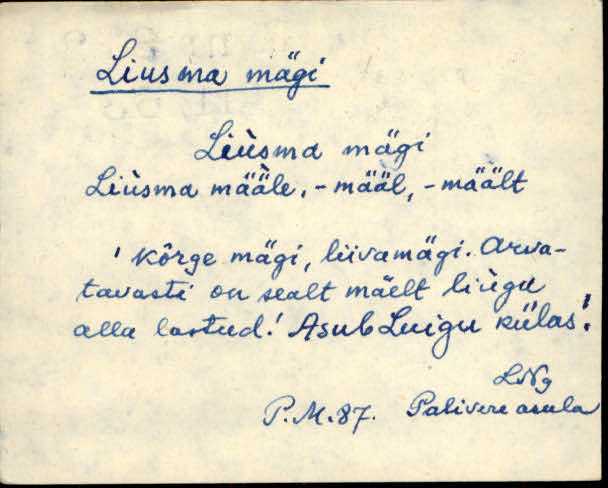 Liusma mägi
Liùsma mägi
Liùsma mä̀äle, -määl, -mäält
' kõrge mägi, liivamägi. Arva-
tavasti on sealt mäelt liùgu
alla lastud.' Asub Luigu külas.'
LNg
P.M.87. Palivere asula